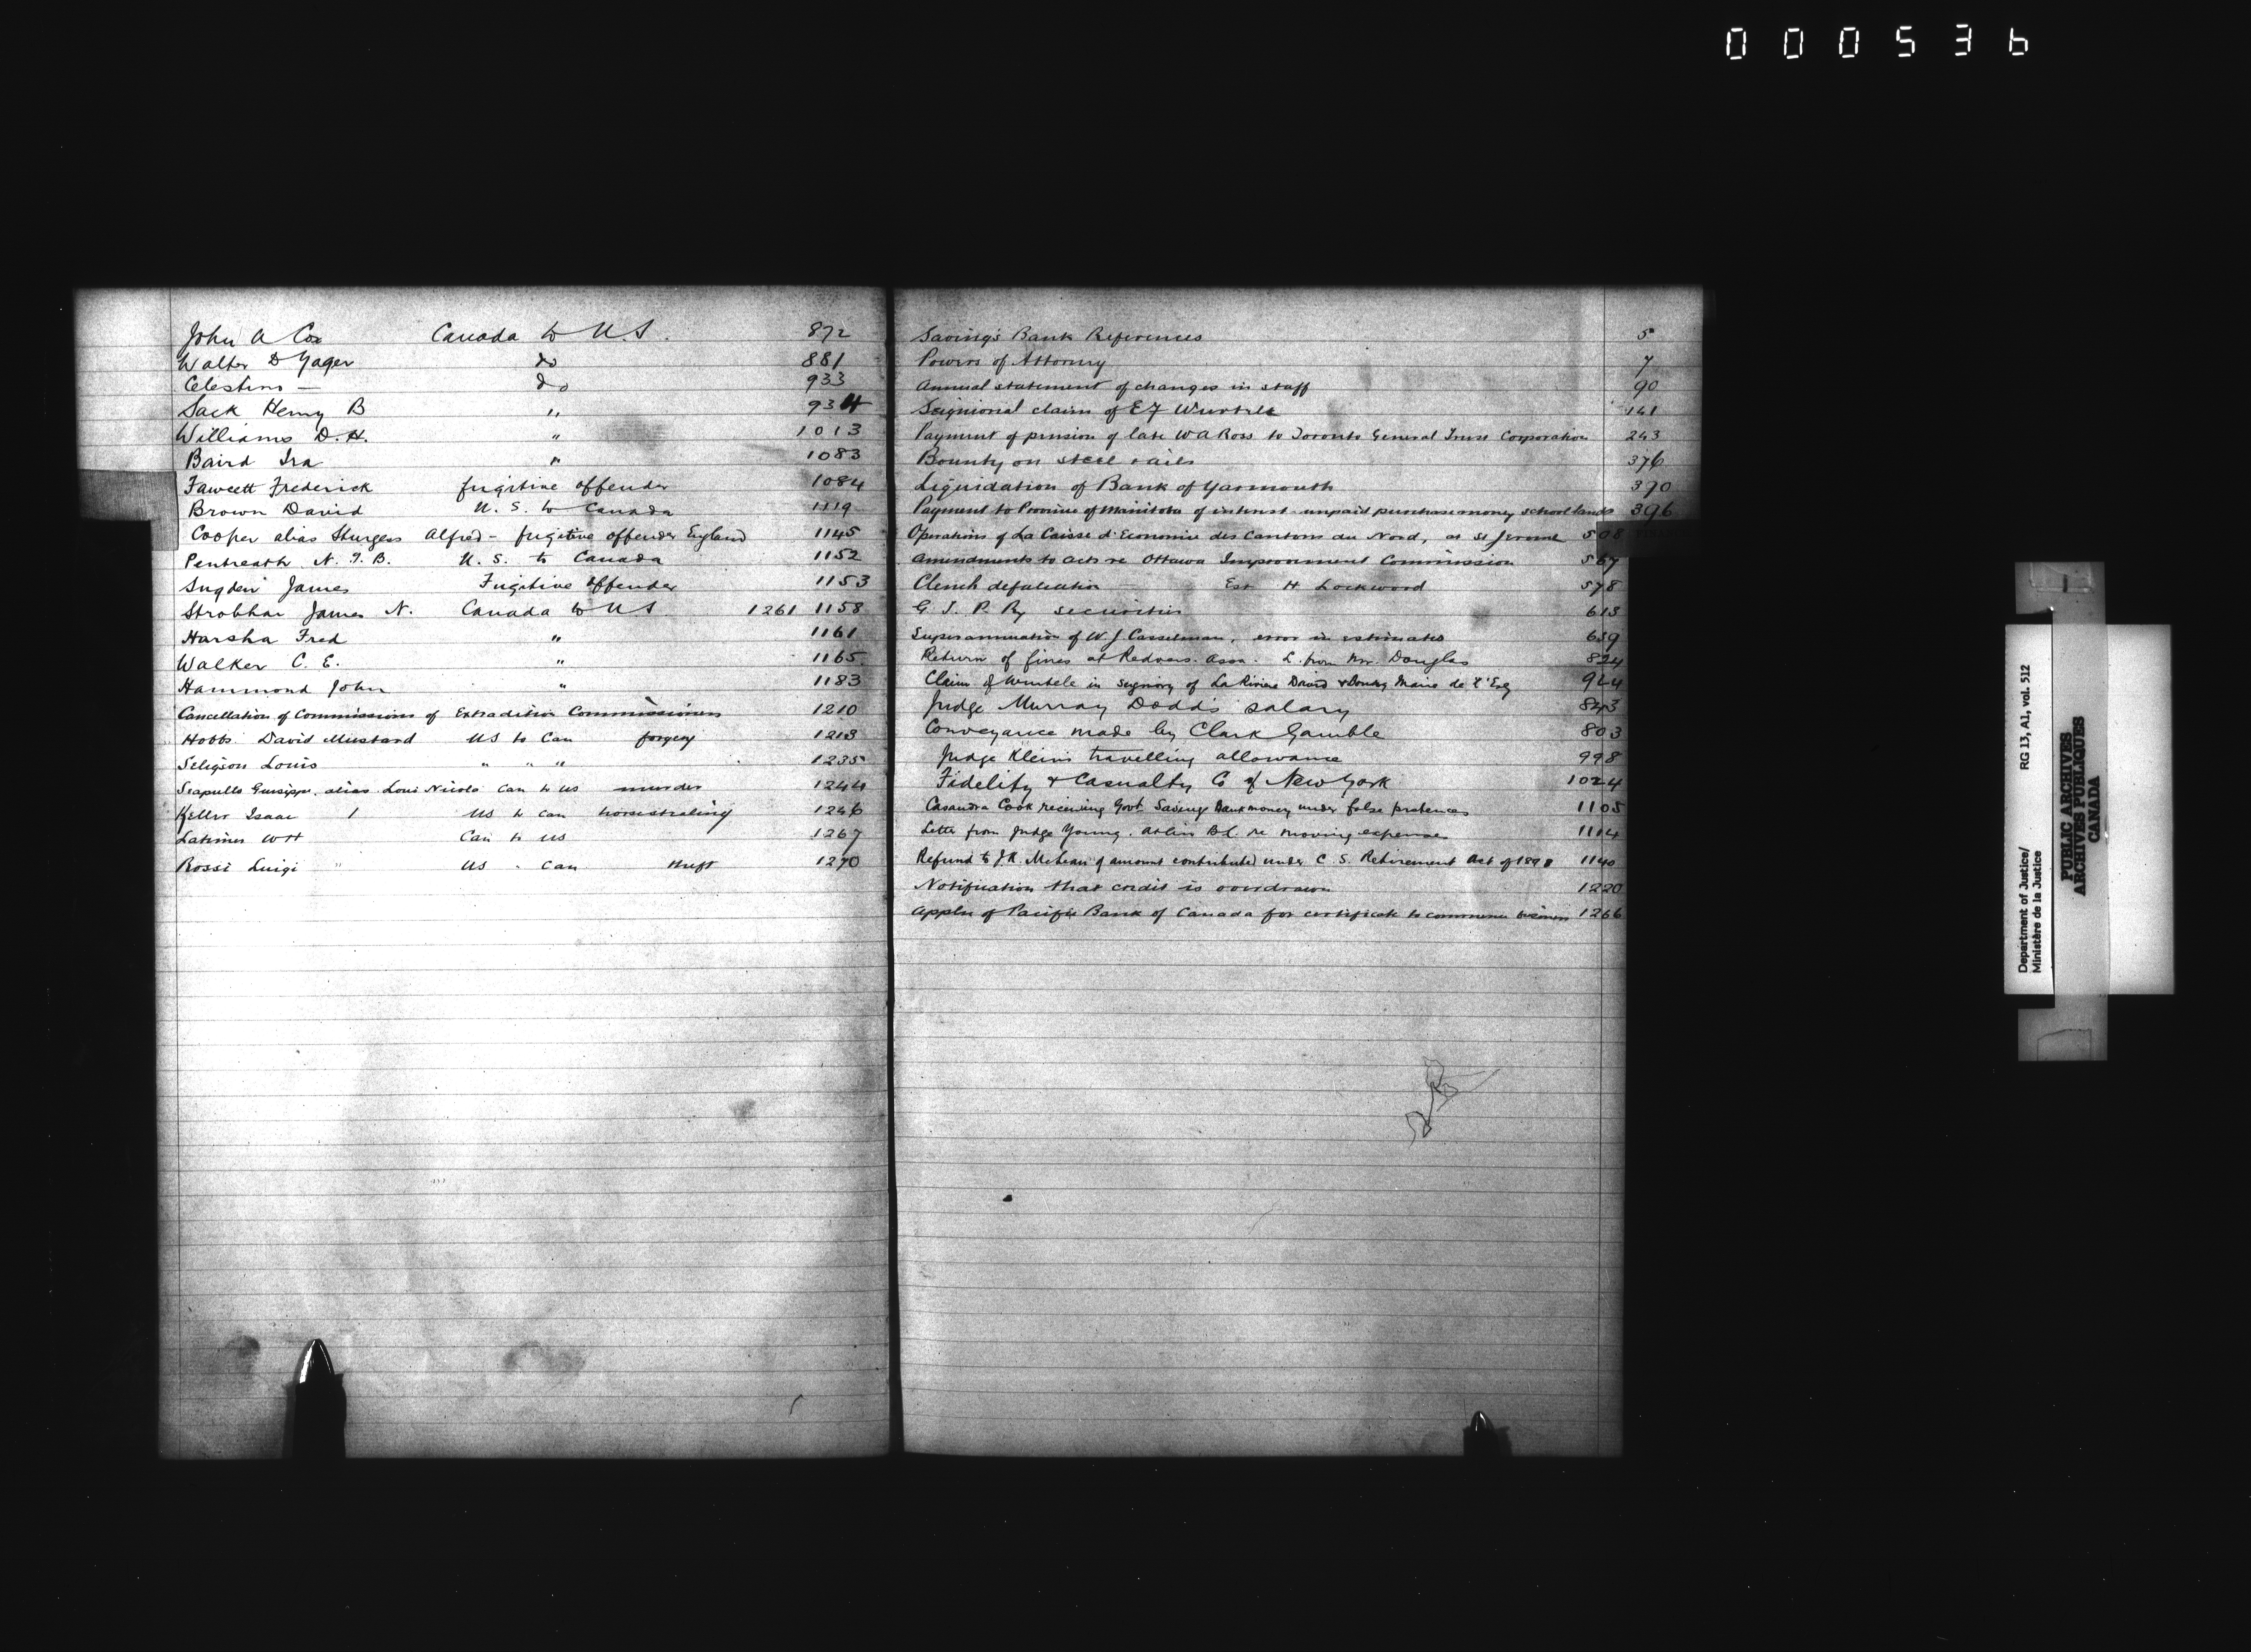 000536
John A Cox Canada to U.S. 872
Walter D Yager do 881
Celestino — do 933
Sack Henry B " 934
Williams D.H. " 1013
Baird Ira " 1083
Fawcett Frederick fugitive offender 1084
Brown David U.S. to Canada 1119
Cooper alias Sturgess Alfred - fugitive offender England 1145
Pentreath N.F.B. U.S. to Canada 1152
Sugden James Fugitive Offender 1153
Strobhar James N. Canada to US 1261 1158
Harsha Fred " 1161
Walker C.E. " 1165
Hammond John " 1183
Cancellation of Commissions of Extradition Commissioners 1210
Hobbs David Mustard US to Can forgery 1213
Seligson Louis " " " 1235
Scapullo Guisippi alias Loui Nicolo Can to US murder 1244
Keller Isaac US to Can horsestealing 1246
Latimer WH Can to US 1267
Rossi Luigi US - Can theft 1270
Saving's Bank References 5
Powers of Attorney 7
Annual statement of changes in staff 90
Seigniorial claim of E F Wurtele 141
Payment of pension of late W A Ross to Toronto General Trust Corporation 243
Bounty on steel rails 376
Liquidation of Bank of Yarmouth 370
Payment to Province of Manitoba of interest unpaid purchase money school lands 396
Operations of La Caisse d'Economie des Cantons du Nord, at St Jerome 508
Amendments to acts re Ottawa Improvement Commission 567
Clench defalcation Est H Lockwood 578
G.T.P. Ry securities 613
Superannuation of W.J. Casselman, error in estimates 659
Return of fines at Redvers. Assa. L. from Mr. Douglas 824
Claim of Wurtele in segniory of La Riviere David & Bourg Marie de l'Est 924
Judge Murray Dodd's salary 843
Conveyance made by Clark Gamble 803
Judge Klein's travelling allowance 998
Fidelity & Casualty Co of New York 1024
Casandra Cook receiving Govt Savings Bank money under false pretences 1105
Letter from Judge Young. Atlin B.C. re moving expenses 1114
Refund to J R. McLean of amount contributed under C.S. Retirement Act of 1898 1140
Notification that credit is overdrawn 1220
Appln of Pacific Bank of Canada for certificate to commence business 1266
Department of Justice/
Ministère de la Justice
RG 13, A1, vol. 512
PUBLIC ARCHIVES
ARCHIVES PUBLIQUES
CANADA